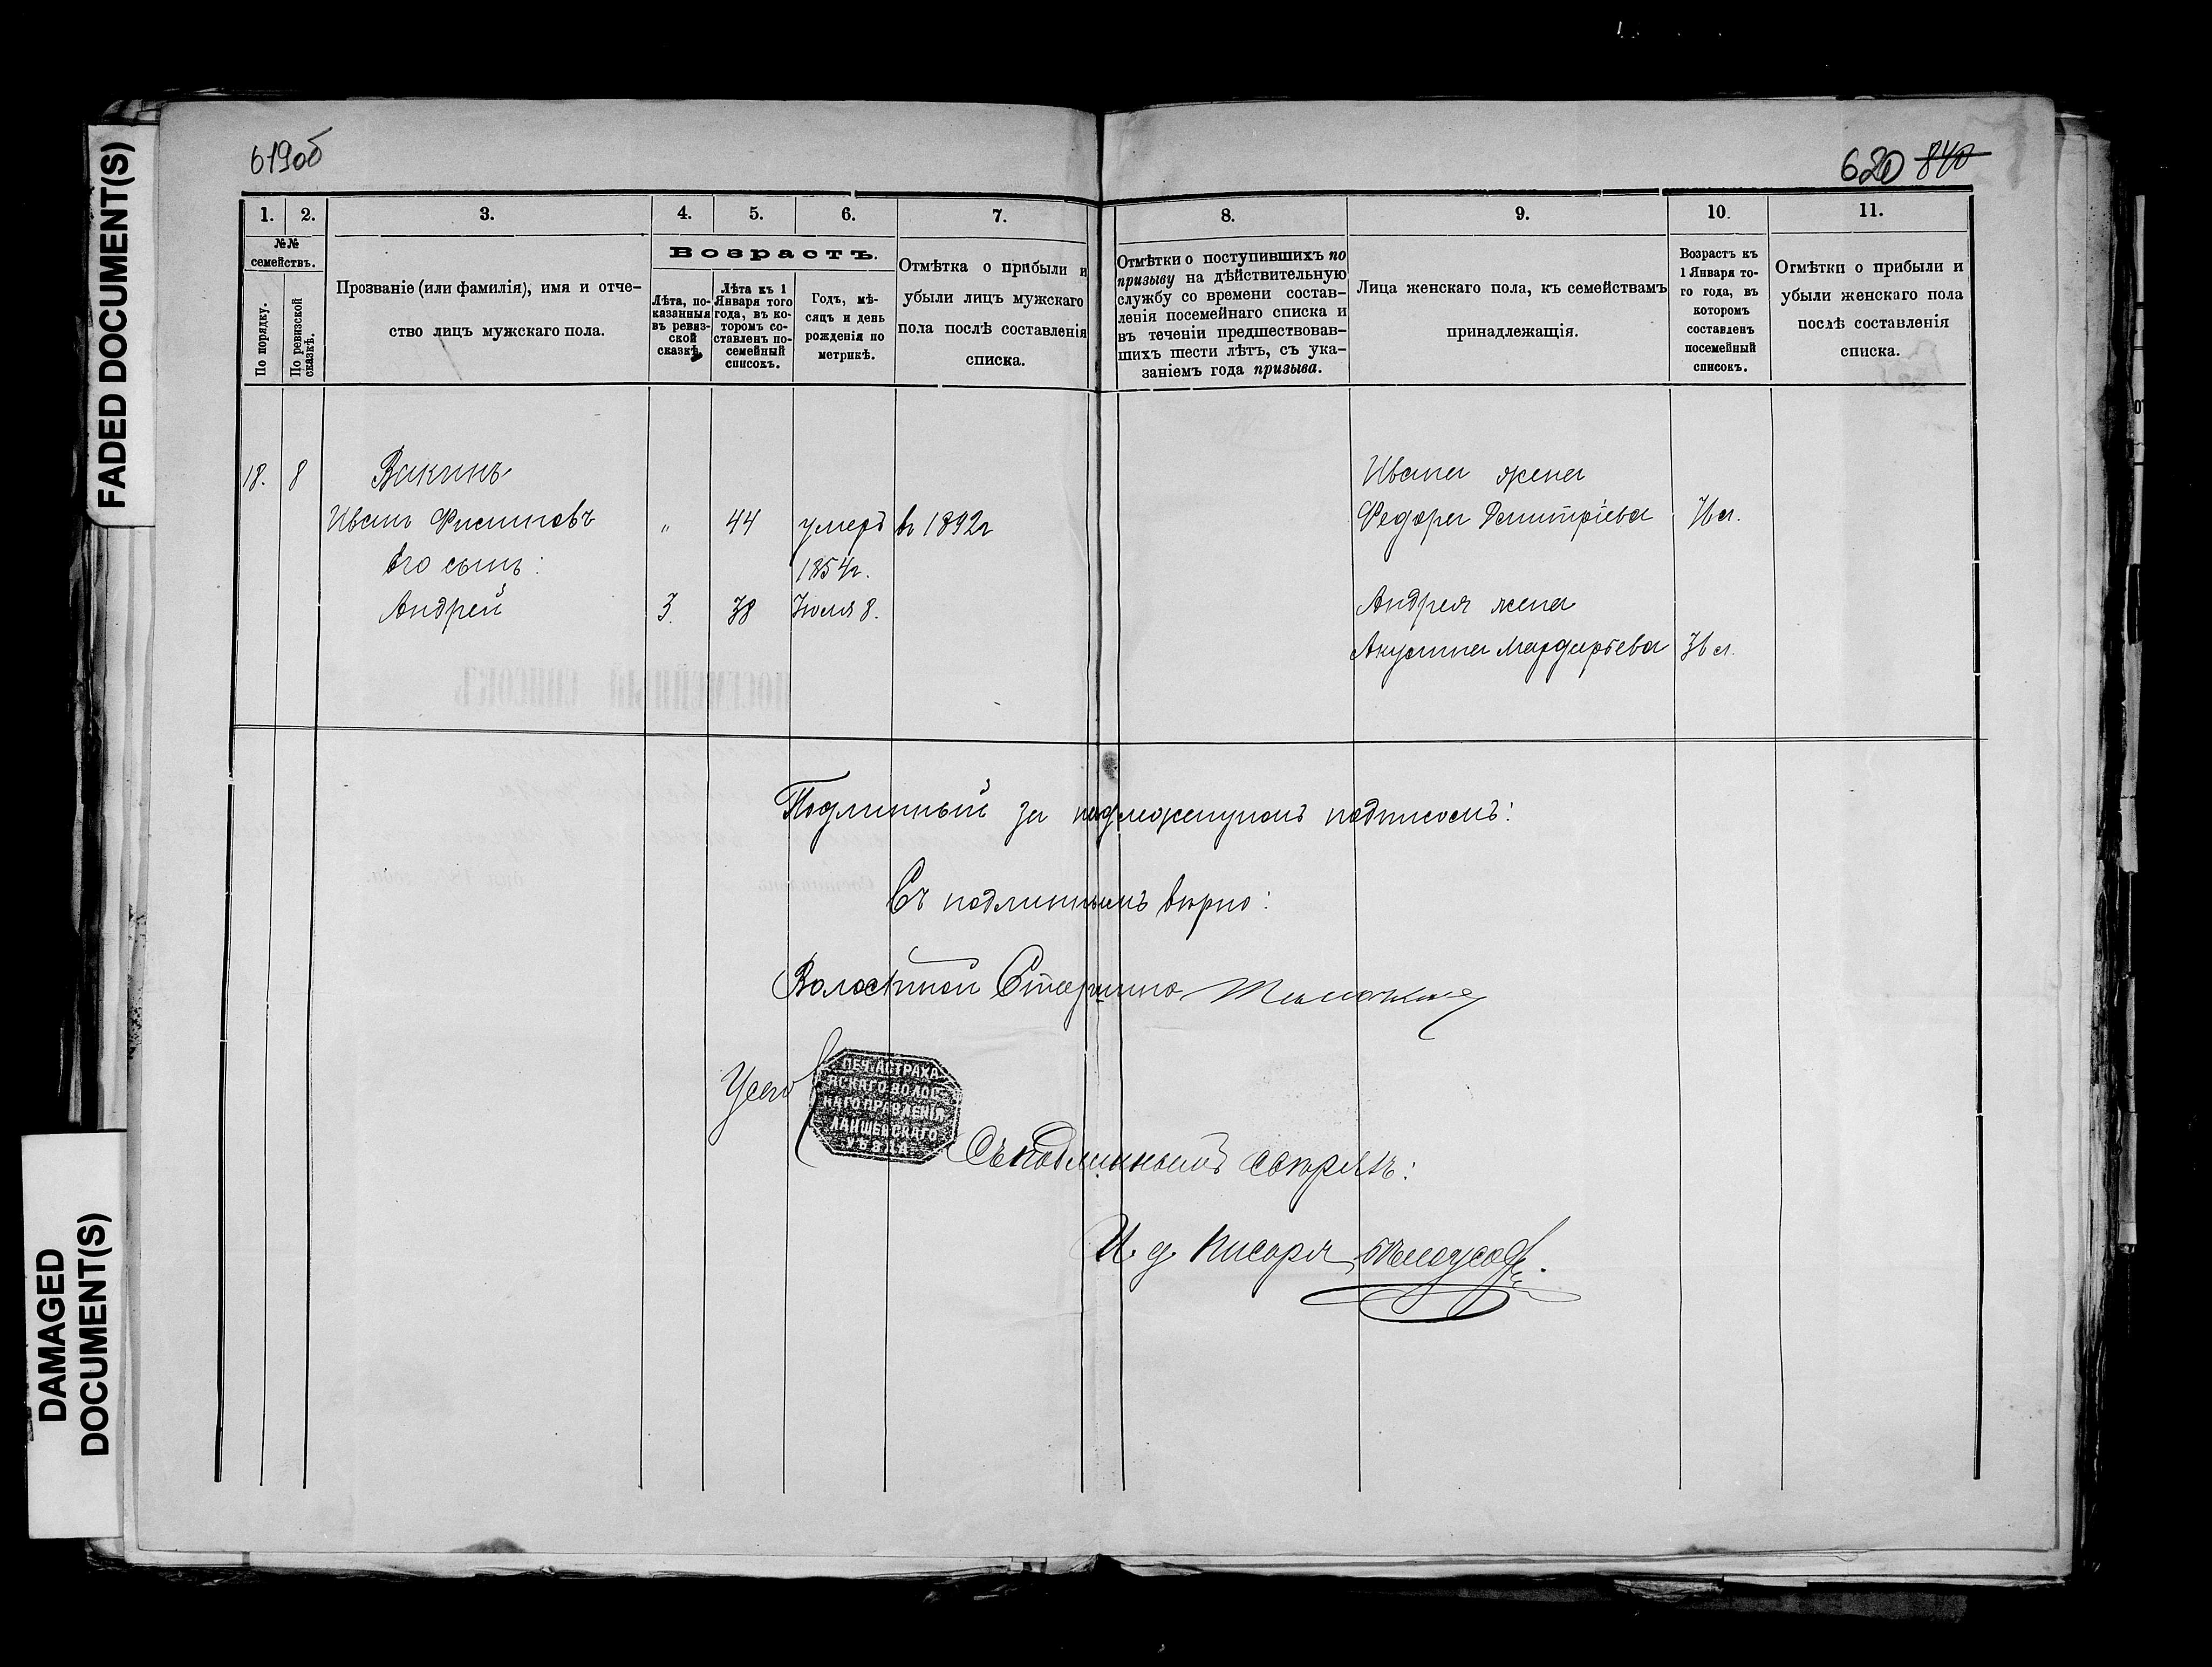 FADED DOCUMENT(S)
DAMAGED
DOCUMENT(S)
619об
620 840
1. 2. 3. 4. 5. 6. 7. 8. 9. 10. 11.
№№
семействъ.
По порядку.
По ревизской
сказкѣ.
Прозваніе (или фамилія), имя и отче-
ство лицъ мужскаго пола.
Возрастъ.
Лѣта, по-
казанныя
въ ревиз-
ской
сказкѣ.
Лѣта къ 1
Января того
года, въ ко-
торомъ со-
ставленъ по-
семейный
списокъ.
Годъ, мѣ-
сяцъ и день
рожденія по
метрикѣ.
Отмѣтка о прибыли и
убыли лицъ мужскаго
пола послѣ составленія
списка.
Отмѣтки о поступившихъ по
призыву на дѣйствительную
службу со времени состав-
ленія посемейнаго списка и
въ теченіи предшествовав-
шихъ шести лѣтъ, съ ука-
заніемъ года призыва.
Лица женскаго пола, къ семействамъ
принадлежащія.
Возрастъ къ
1 Января то-
го года, въ
которомъ
составленъ
посемейный
списокъ.
Отмѣтки о прибыли и
убыли женскаго пола
послѣ составленія
списка.
18. 8 Вакинъ Ивана жена
Иванъ " 44 умеръ въ 1892г Федора Дмитріева
Его сынъ: 1854г.
Андрей 3. 38 Іюля 8. Андрея жена
Акулина Мардарьева 36 л.
Подлинный за надлежащимъ подписомъ:
Съ подлиннымъ вѣрно:
Волостной Старшина
ПЕЧ. АСТРАХА
НСКАГО ВОЛОС
НАГО ПРАВЛЕНІЯ
ЛАИШЕВСКАГО
УѢЗДА
Съ подлиннымъ свѣрялъ:
И. д. писаря